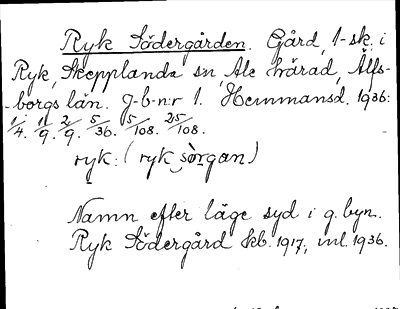 Ryk Södergården. Gård, 1-sk. i
Ryk, Skepplanda sn, Ale härad, Älfs-
borgs län. g-b-n:r 1. Hemmansd. 1936:
1/4. 11/9. 2/9. 5/36. 5/108. 25/108.
ryk: (ryk sòrgan)
Namn efter läge syd i g. byn.
Ryk Södergård kb. 1917, ml. 1936.